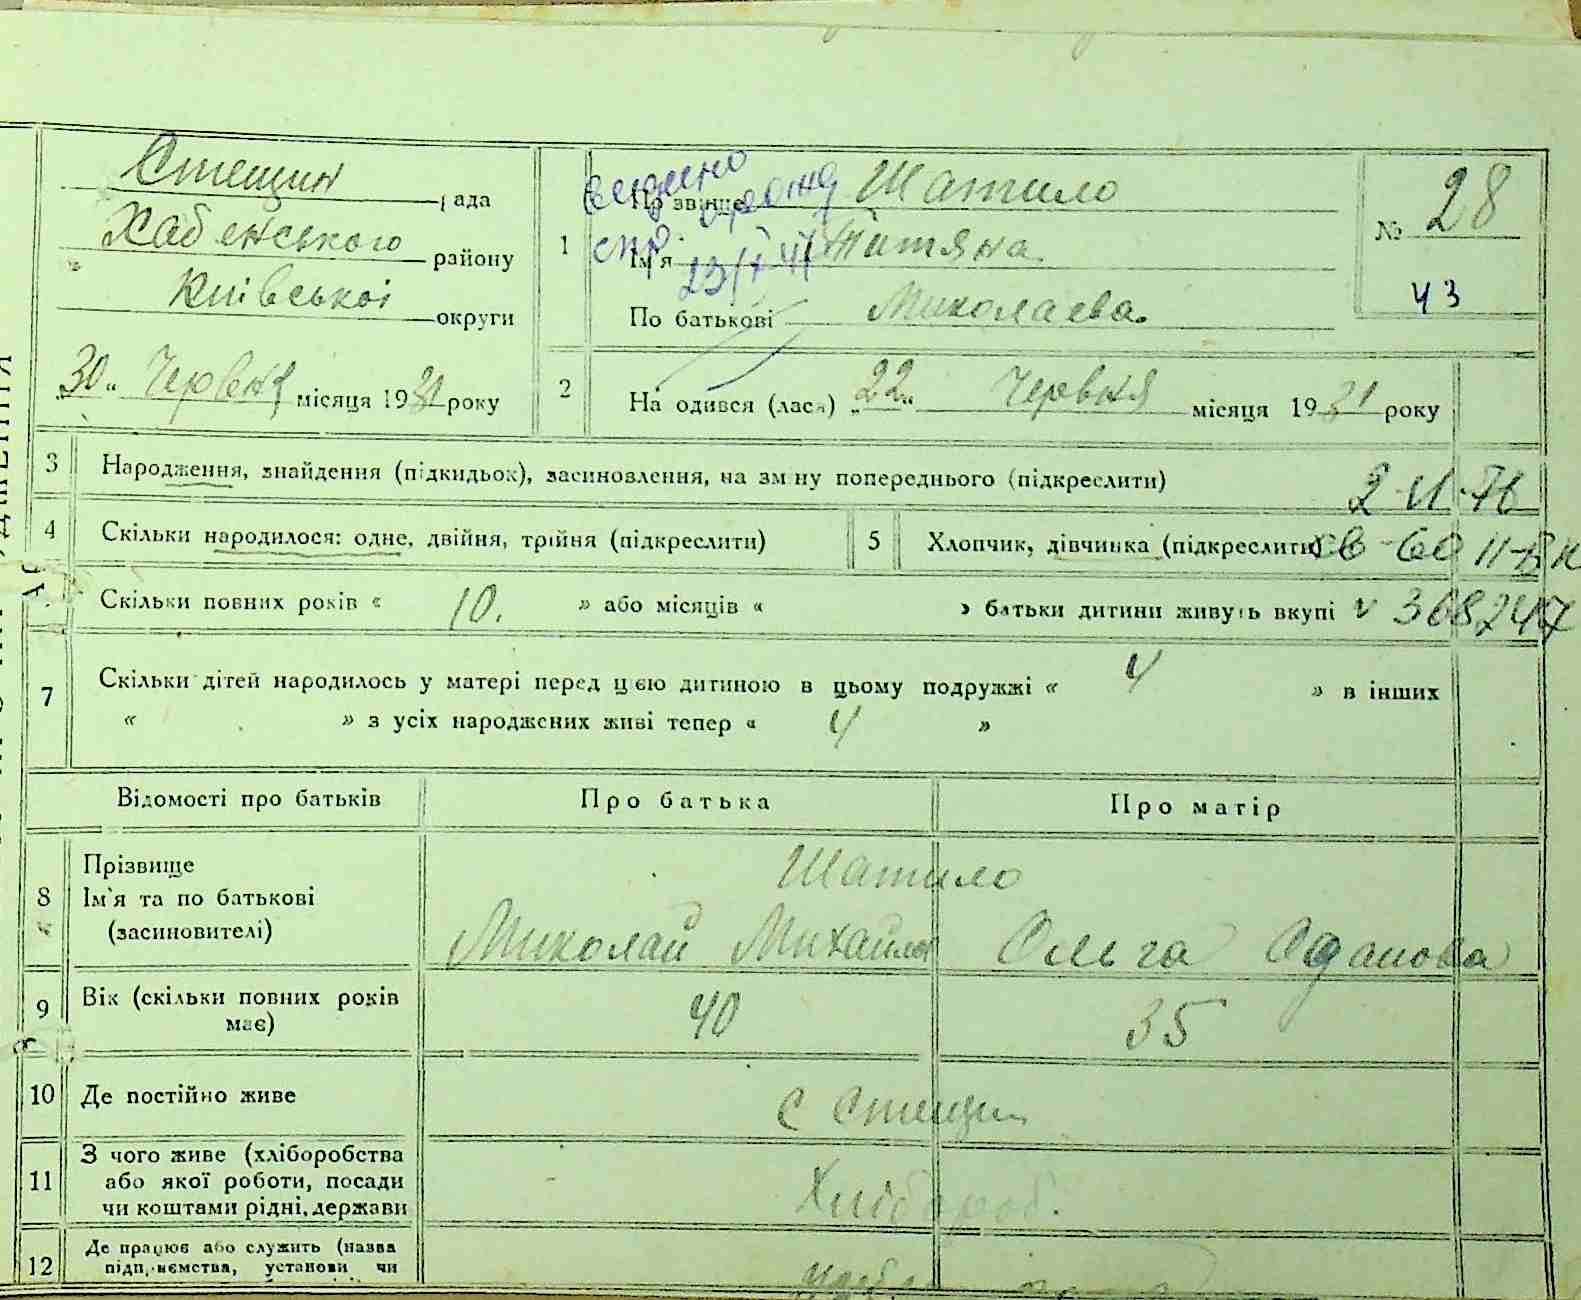 Стещин рада
Хабенського району
Київської округи
„30“ Червня місяця 1931 року
1
видано
спр.
23/І 41
Прізвище Шатило
Ім'я Титяна
По батькові Миколаева.
№ 28
43
2
Народився (лася) „22“ Червня місяця 1931 року
3 Народження, знайдення (підкидьок), засиновлення, на зміну попереднього (підкреслити)
4 Скільки народилося: одне, двійня, трійня (підкреслити)
5 Хлопчик, дівчинка (підкреслити)
368247
Скільки повних років « 10. » або місяців « » батьки дитини живуть вкупі
7 Скільки дітей народилось у матері перед цією дитиною в цьому подружжі « 4 » в інших
« » з усіх народжених живі тепер « 4 »
Відомості про батьків Про батька Про матір
8 Прізвище Шатило
Ім'я та по батькові
(засиновителі) Миколай Михайлов Ольга
9 Вік (скільки повних років
має) 40 35
10 Де постійно живе с Стещин
11 З чого живе (хліборобства
або якої роботи, посади
чи коштами рідні, держави Хлібороб.
12 Де працює або служить (назва
підприємства, установи чи